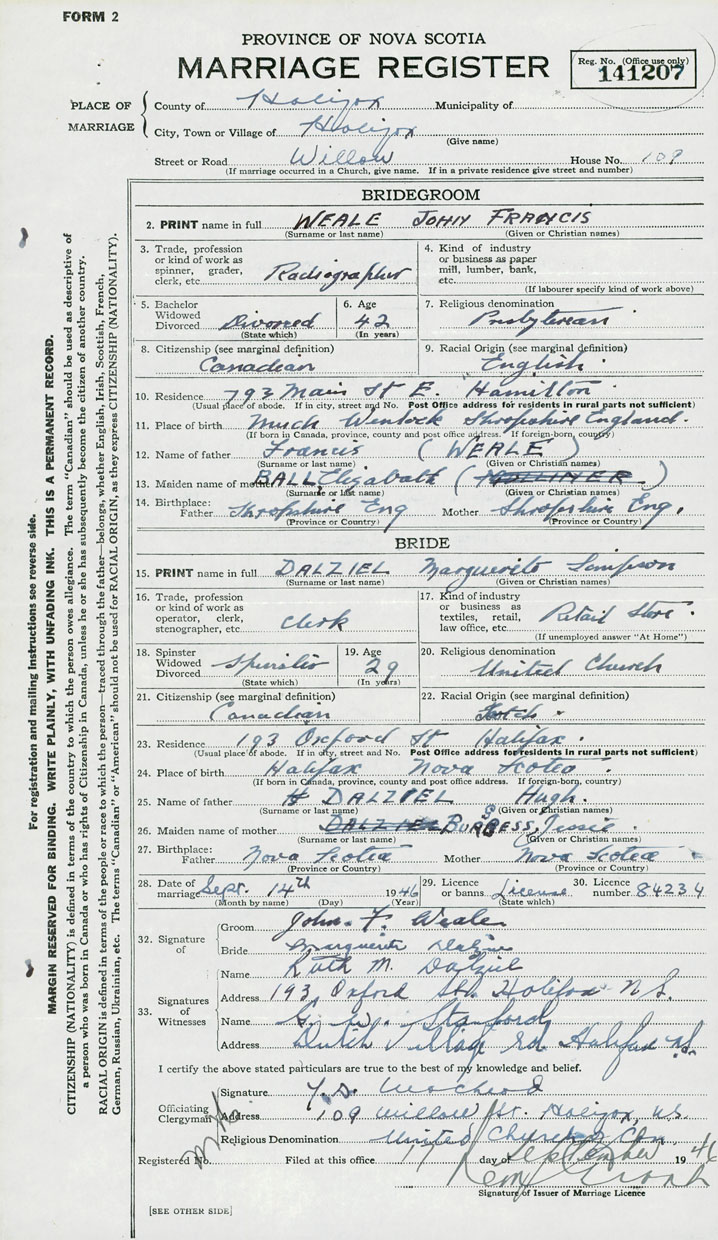 FORM 2
PROVINCE OF NOVA SCOTIA
MARRIAGE REGISTER
Reg. No. (Office use only)
141207
PLACE OF MARRIAGE
County of Halifax Municipality of
City, Town or Village of Halifax
(Give name)
Street or Road Willow House No. 109
(If marriage occurred in a Church, give name. If in a private residence give street and number)
BRIDEGROOM
2. PRINT name in full WEALE JOHN FRANCIS
(Surname or last name) (Given or Christian names)
3. Trade, profession or kind of work as spinner, grader, clerk, etc. Radiographer
4. Kind of industry or business as paper mill, lumber, bank, etc.
(If labourer specify kind of work above)
5. Bachelor Widowed Divorced Divorced
(State which)
6. Age 42
(In years)
7. Religious denomination Presbyterian
8. Citizenship (see marginal definition) Canadian
9. Racial Origin (see marginal definition) English
10. Residence 793 Main St E. Hamilton
(Usual place of abode. If in city, street and No. Post Office address for residents in rural parts not sufficient)
11. Place of birth Much Wenlock Shropshire England.
(If born in Canada, province, county and post office address. If foreign-born, country)
12. Name of father Francis (WEALE)
(Surname or last name) (Given or Christian names)
13. Maiden name of mother BALL Elizabeth ( )
(Surname or last name) (Given or Christian names)
14. Birthplace: Father Shropshire Eng Mother Shropshire Eng.
(Province or Country) (Province or Country)
BRIDE
15. PRINT name in full DALZIEL Marguerite Simpson
(Surname or last name) (Given or Christian names)
16. Trade, profession or kind of work as operator, clerk, stenographer, etc. Clerk
17. Kind of industry or business as textiles, retail, law office, etc. Retail Store.
(If unemployed answer "At Home")
18. Spinster Widowed Divorced Spinster
(State which)
19. Age 29
(In years)
20. Religious denomination United Church
21. Citizenship (see marginal definition) Canadian
22. Racial Origin (see marginal definition) Scotch
23. Residence 193 Oxford St Halifax.
(Usual place of abode. If in city, street and No. Post Office address for residents in rural parts not sufficient)
24. Place of birth Halifax Nova Scotia
(If born in Canada, province, county and post office address. If foreign-born, country)
25. Name of father DALZIEL Hugh.
(Surname or last name) (Given or Christian names)
26. Maiden name of mother DALZIEL BURGESS, Jessie
(Surname or last name) (Given or Christian names)
27. Birthplace: Father Nova Scotia Mother Nova Scotia
(Province or Country) (Province or Country)
28. Date of marriage Sept. 14th 1946
(Month by name) (Day) (Year)
29. Licence or banns License
(State which)
30. Licence number 84234
32. Signature of
Groom John F. Weale
Bride Marguerite Dalziel
33. Signatures of Witnesses
Name Ruth M. Dalziel
Address 193 Oxford St. Halifax N.S.
Name G. W. Stanford
Address Dutch Village Rd Halifax N.S.
I certify the above stated particulars are true to the best of my knowledge and belief.
Officiating Clergyman
Signature MacLeod
Address 109 Willow St. Halifax, N.S.
Religious Denomination United Church of Can.
Registered No. Filed at this office 17 day of September 1946
Signature of Issuer of Marriage Licence
[SEE OTHER SIDE]
For registration and mailing instructions see reverse side.
MARGIN RESERVED FOR BINDING. WRITE PLAINLY, WITH UNFADING INK. THIS IS A PERMANENT RECORD.
CITIZENSHIP (NATIONALITY) is defined in terms of the country to which the person owes allegiance. The term "Canadian" should be used as descriptive of
a person who was born in Canada or who has rights of Citizenship in Canada, unless he or she has subsequently become the citizen of another country.
RACIAL ORIGIN is defined in terms of the people or race to which the person—traced through the father—belongs, whether English, Irish, Scottish, French,
German, Russian, Ukrainian, etc. The terms "Canadian" or "American" should not be used for RACIAL ORIGIN, as they express CITIZENSHIP (NATIONALITY).